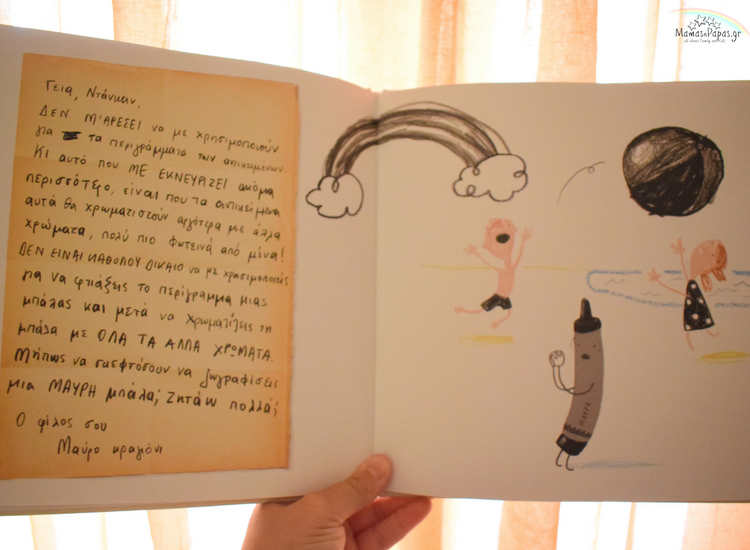 Γεια, Ντάνκαν,
ΔΕΝ Μ'ΑΡΕΣΕΙ να με χρησιμοποιούν
για τα περιγράμματα των αντικειμένων.
Κι αυτό που ΜΕ ΕΚΝΕΥΡΙΖΕΙ ακόμα
περισσότερο, είναι που τα αντικείμενα
αυτά θα χρωματιστούν αργότερα με άλλα
χρώματα, πολύ πιο φωτεινά από μένα!
ΔΕΝ ΕΙΝΑΙ ΚΑΘΟΛΟΥ ΔΙΚΑΙΟ να με χρησιμοποιείς
για να φτιάξεις το περίγραμμα μιας
μπάλας και μετά να χρωματίζεις τη
μπάλα με ΟΛΑ ΤΑ ΑΛΛΑ ΧΡΩΜΑΤΑ.
Μήπως να σκεφτόσουν να ζωγραφίσεις
μια ΜΑΥΡΗ μπάλα; Ζητάω πολλά;
Ο φίλος σου
Μαύρο κραγιόνι
MamasnPapas.gr
all about Family and Kids